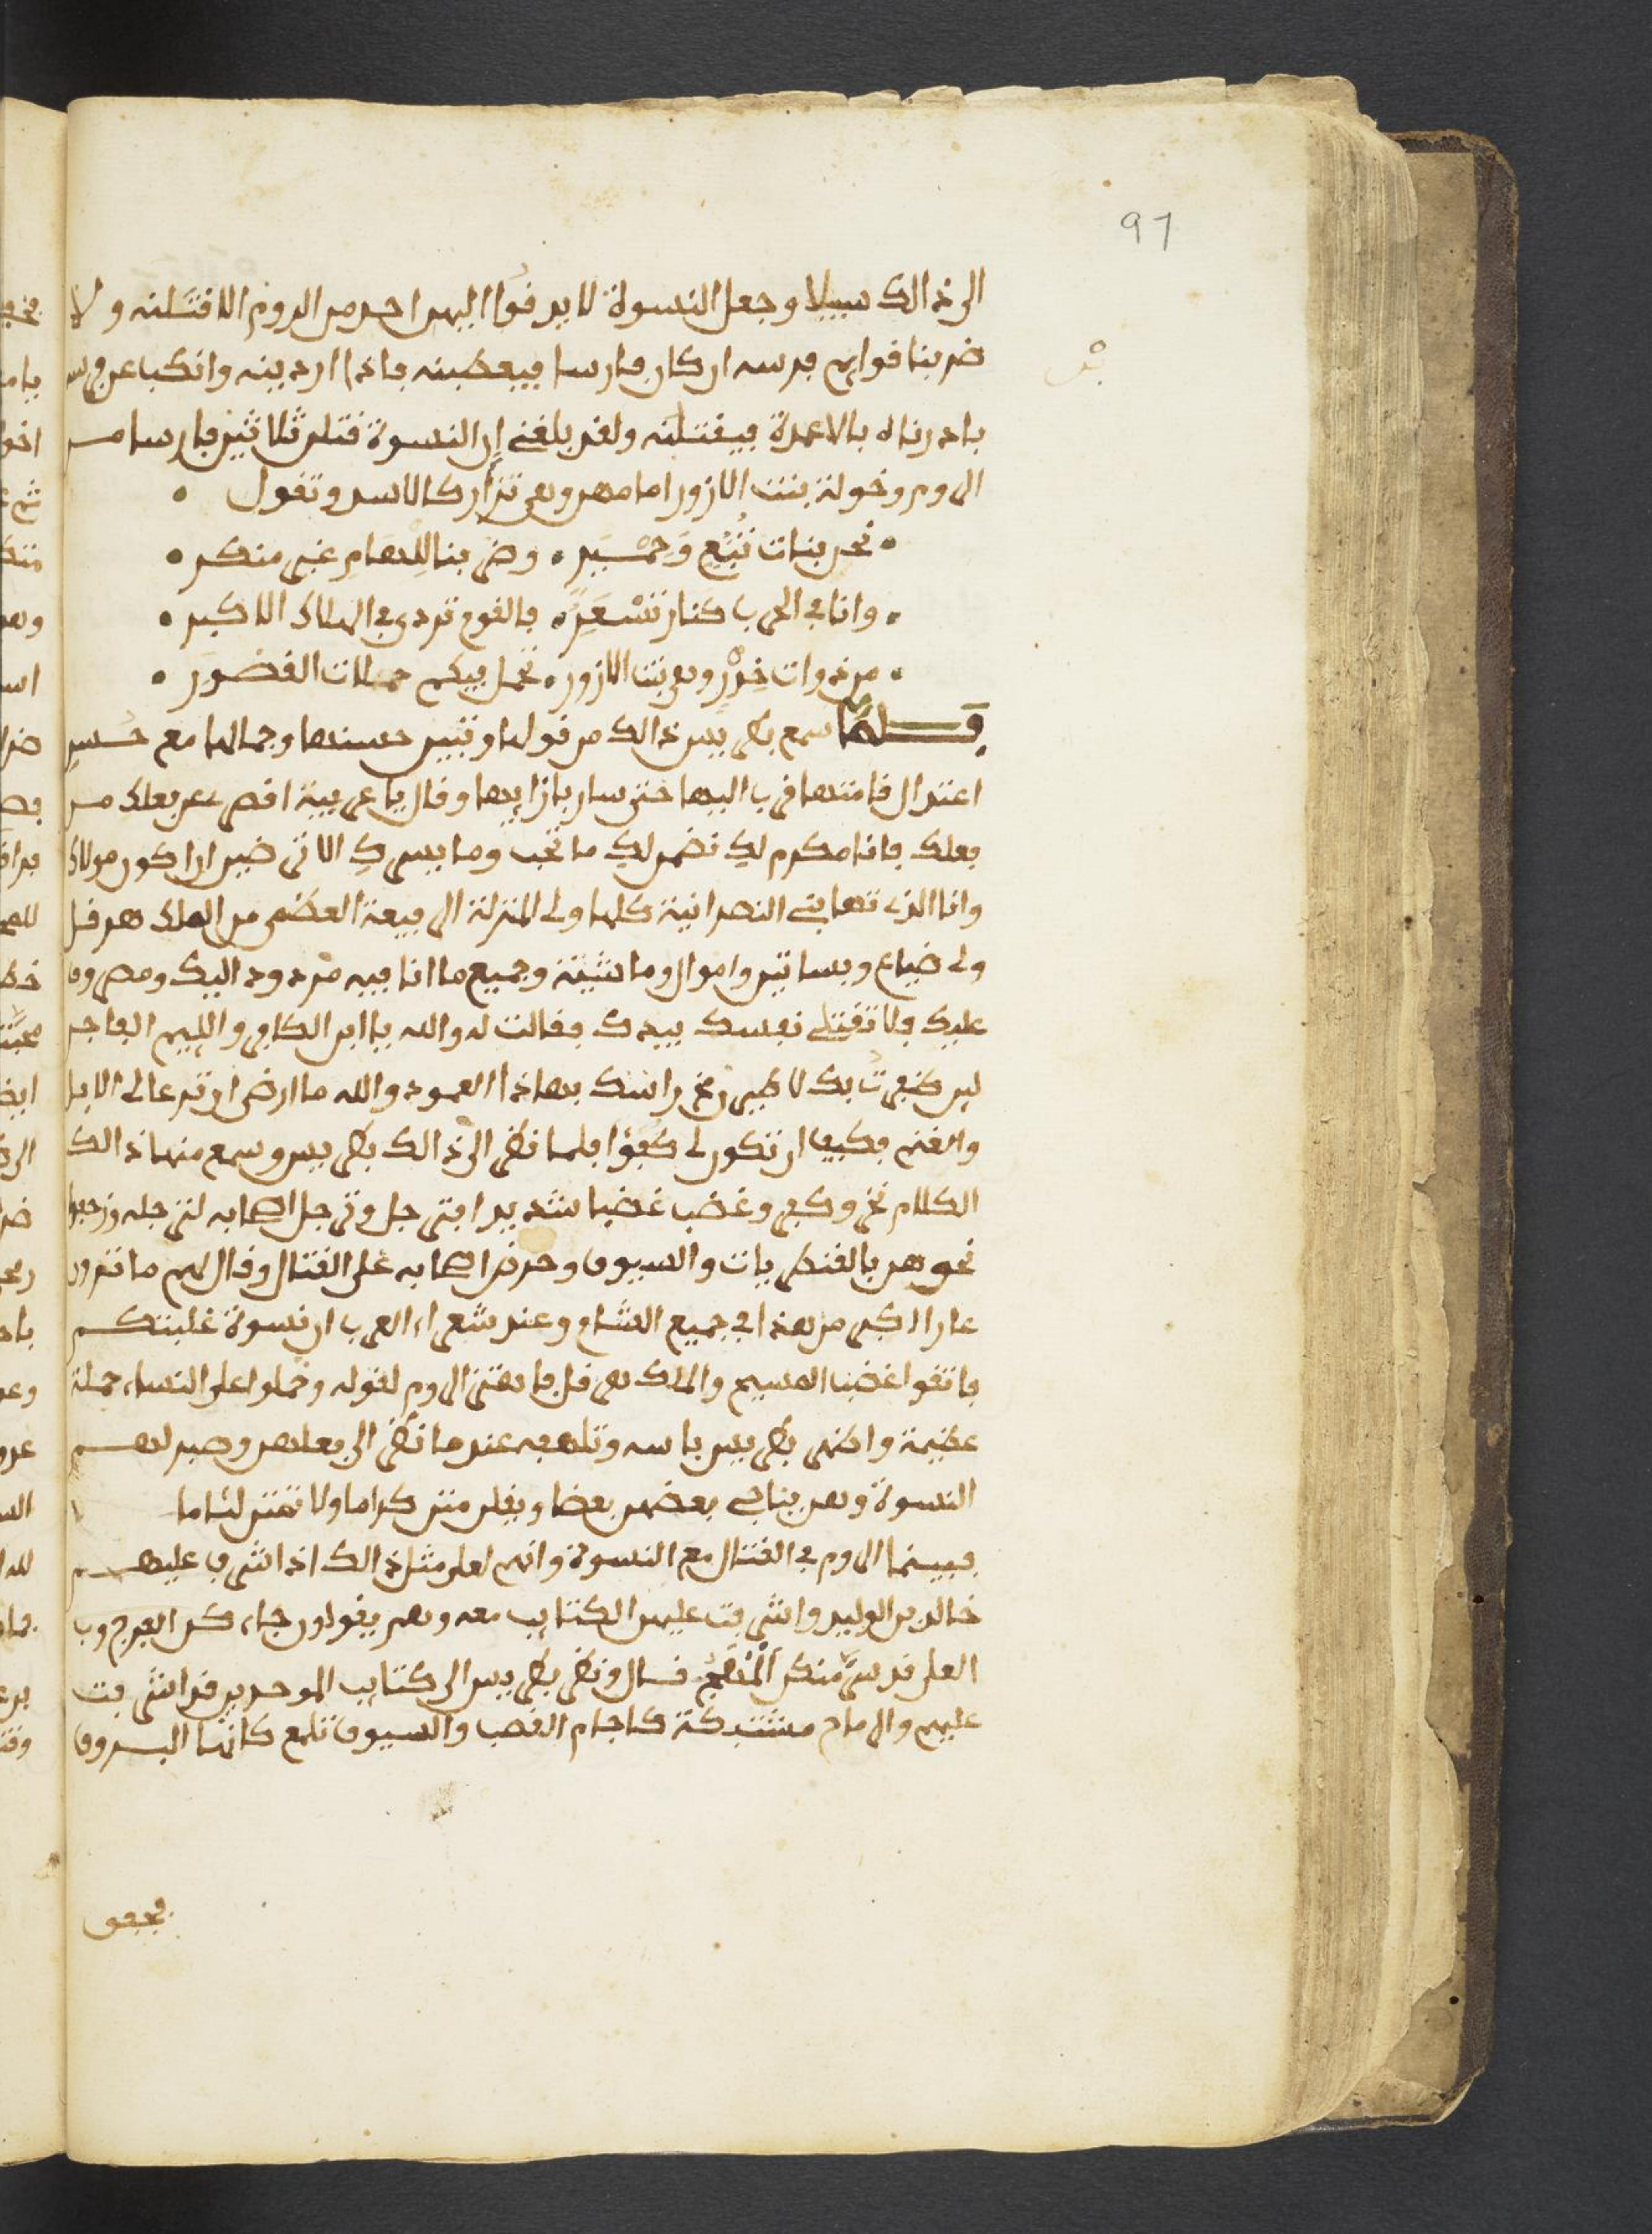 97
الى ذالك سبيلا وجعل النسوة لا يدفوا اليهن احد من الروم الا قتلنه ولا
ضربنا قوايم فرسه ان كان فارسا فيبعطبنه فاذا اردينه وانكبا عن فرسه
بادرناه بالاعمدة فيقتلنه ولقد بلغني ان النسوة قتلن ثلاثين فارسا من
الروم وخولة بنت الازور امامهن وهي تزأر كالاسد وتقول
نحن بنات تُبَّعٍ وَحِمْيَرِ • وضربنا للهامِ غير منكر
وانا في الحرب كنار تسْعَرِ • فالقوم تردى في الهلاك الاكبر
من ذوات خِدْرٍ وهي بنت الازور • نحمل فيكم حملات القصْوَر
فلما سمع بطرس ذالك من قولها وتبين حسنها وجمالها مع حسن
اعتدال قامتها قرب اليها حتى سار بازايها وقال يا عربية اقصري عن بعلك من
بعلك فانا مكرم لكِ نضمر لكِ ما تحب وما يسركِ الا ترضين ان اكون مولاك
وانا الذي تهابني النصرانية كلها ولى المنزلة الرفيعة العضمى من الملك هرقل
ولي ضياع وبساتين واموال وماشية وجميع ما انا فيه مردود اليك ومصروف
عليك فلا تقتلي نفسك بيدك فقالت له والله يا ابن الكافر واللييم الفاجر
لين ضفرتُ بك لاطيرن مخ راسك بهاذا العمود والله ما ارضى ان ترعى لي الابل
والغنم فكيف ان تكون لي كُفؤا فلما نظر الى ذالك بطرس وسمع منها ذالك
الكلام نخر وكفر وغضب غضبا شديدا فترجل وترجل اصحابه لترجله وزحفوا
نحوهن بالقنطريات والسيوف وحرض اصحابه على القتال وقال لهم ما ترون
عارا اكبر من هذا في جميع الشام وعند شعراء العرب ان نسوة غلبتكم
فاتقوا غضب المسيح والملك هرقل فافترق الروم لقوله وحملوا على النساء حملة
عظيمة واظهر بطرس باسه وتلهفه عند ما نظر الى فعلهن وصبر لهم
النسوة وهن يناجي بعضهن بعضا ويقلن متن كراما ولا تمتن لئاما
فبينما الروم في القتال مع النسوة وانهم لعلى مثل ذالك اذ اشرف عليهم
خالد بن الوليد واشرفت عليهن الكتايب معه وهم يقولون جاء كن الفرج ورب
العلى قد سرَّ منكن المُنهَجُ قال ونظر بطرس الى كتايب الموحدين قد اشرفت
عليهم والرماح مشتبكة كاجام القصب والسيوف تلمع كانها البروق